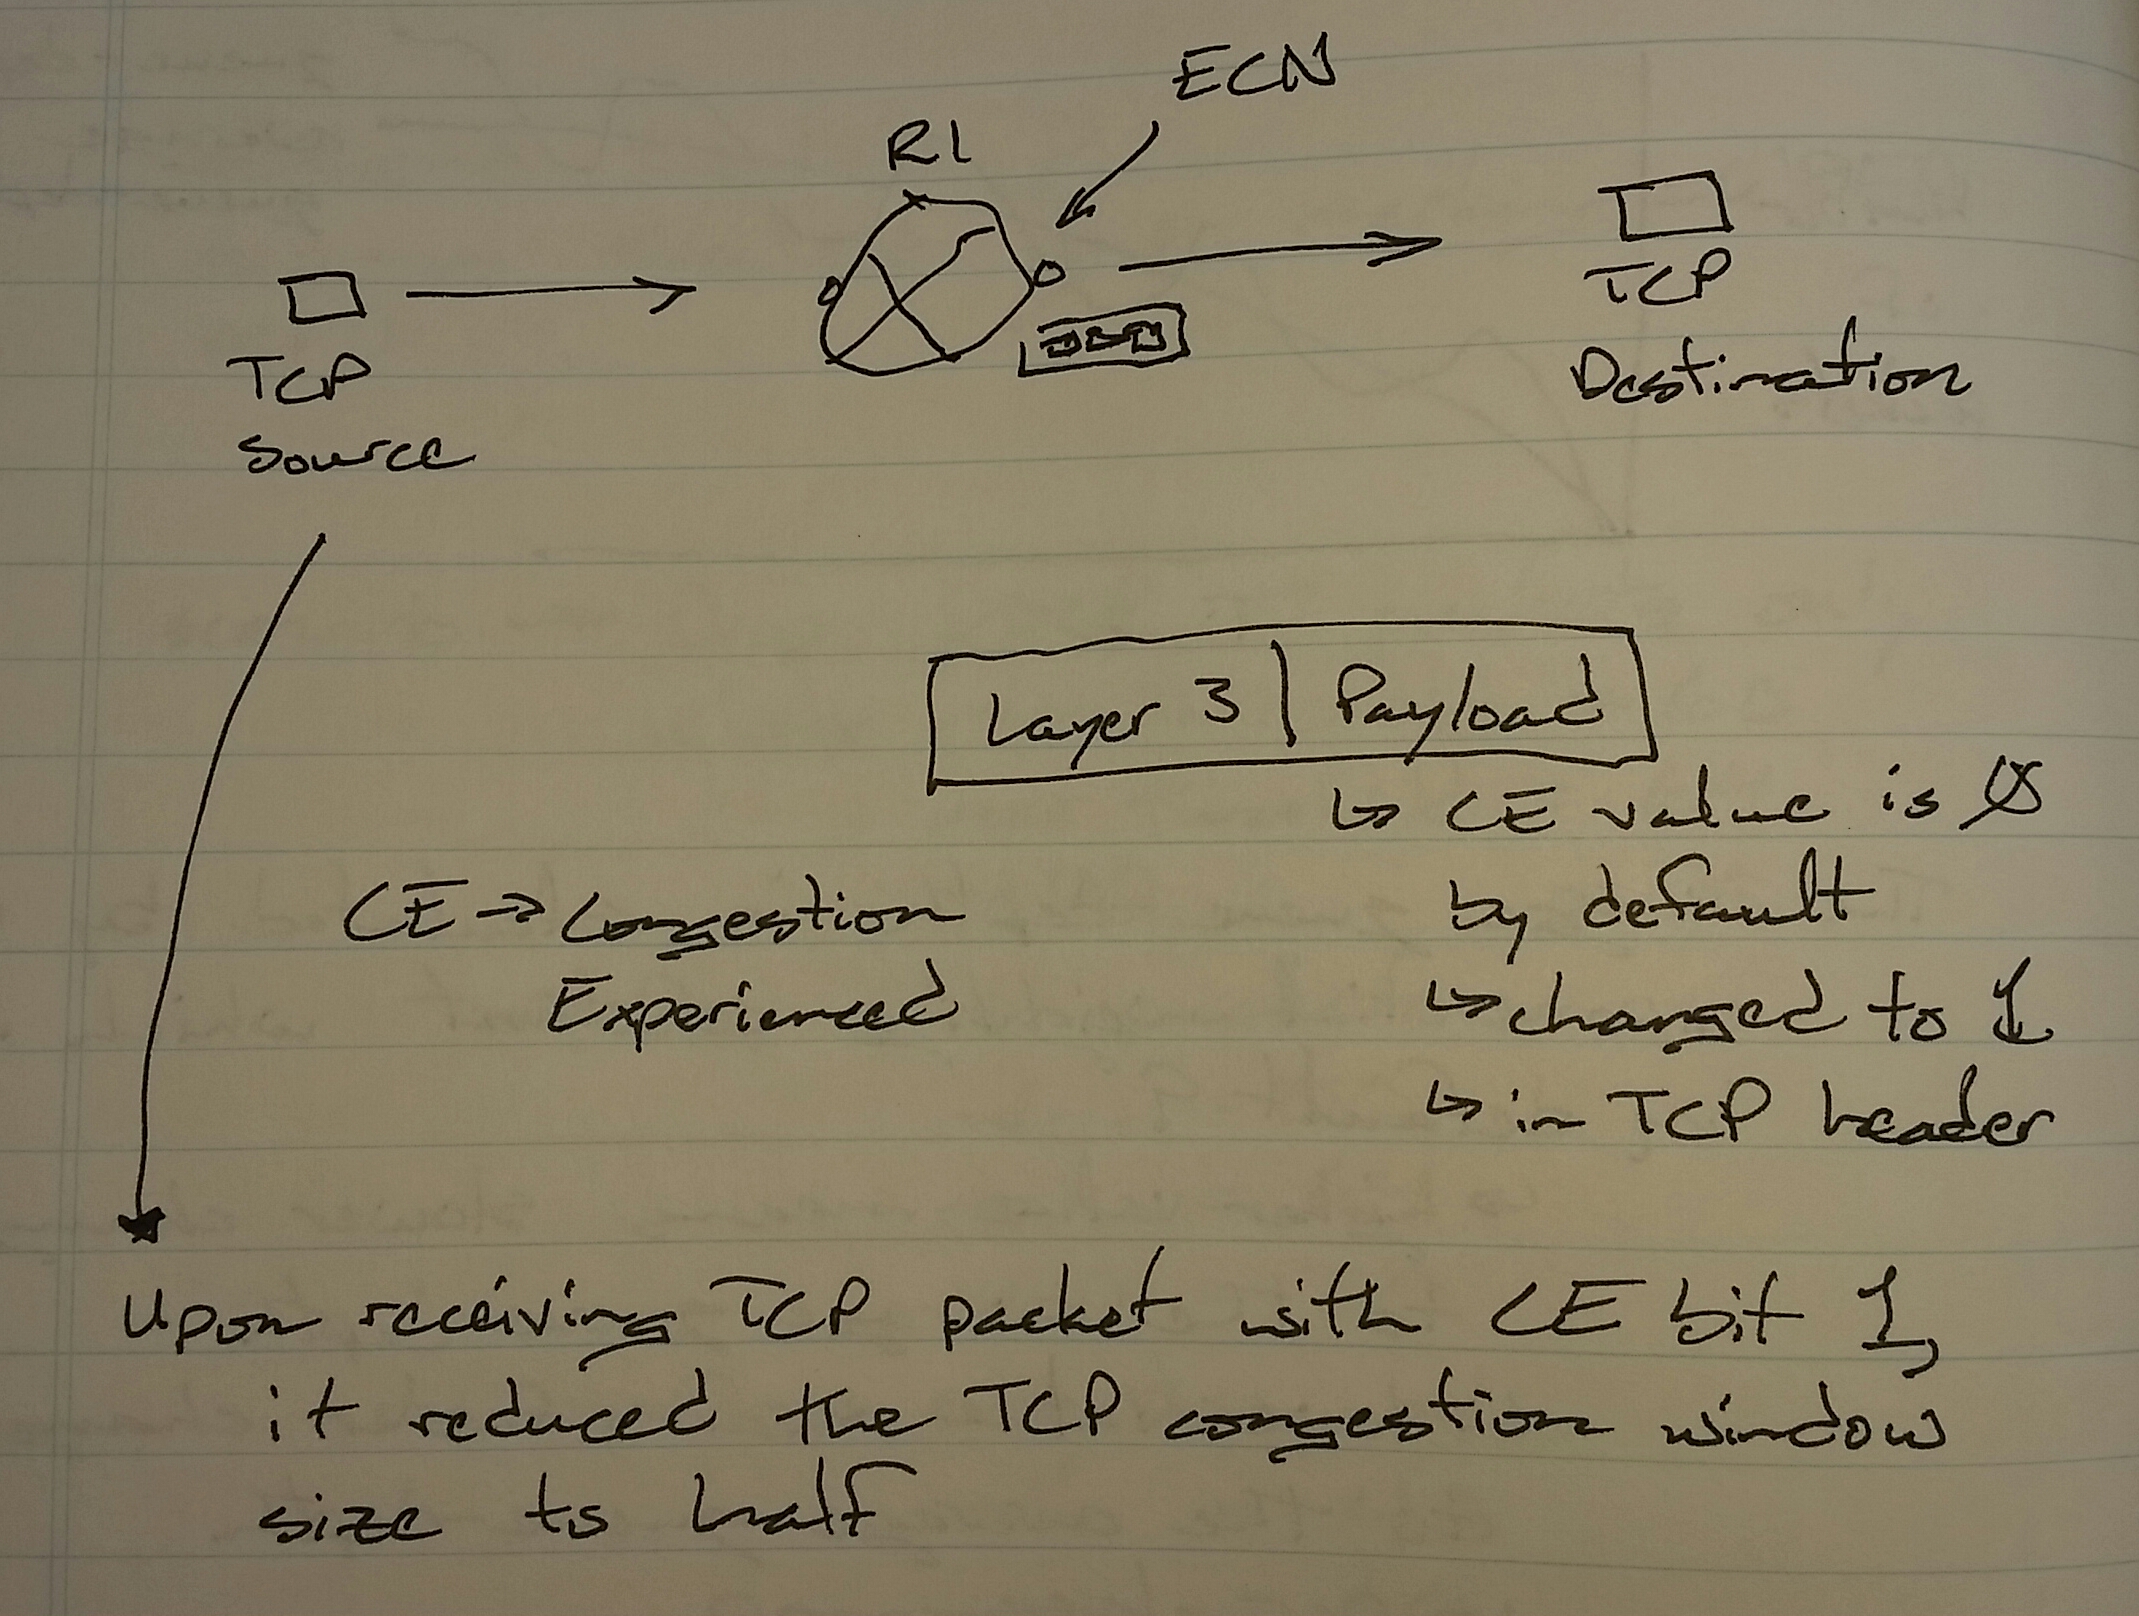 ECN
R1
TCP
Source
TCP
Destination
Layer 3 | Payload
↳ CE value is 0
by default
CE → Congestion
Experienced
↳ changed to 1
↳ in TCP header
Upon receiving TCP packet with CE bit 1,
it reduced the TCP congestion window
size to half